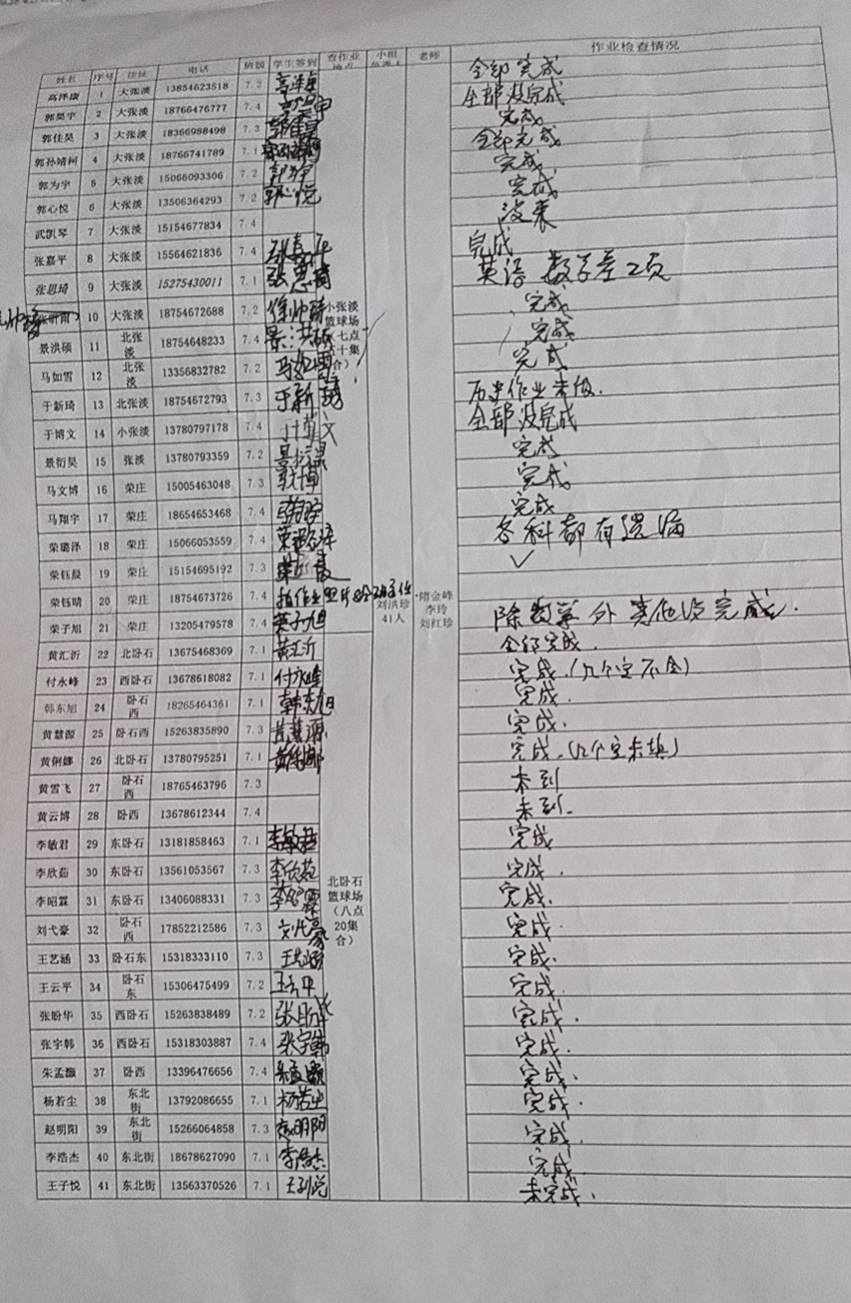 姓名 序号 住址 电话 班级 学生签到 查作业地点 小组 老师 作业检查情况
高泽康 1 大张淡 13854623518 7.2 全部完成
郭昊宇 2 大张淡 18766476777 7.4 全部没完成
郭佳昊 3 大张淡 18366988498 7.3 完成
郭孙靖柯 4 大张淡 18766741789 7.1 全部完成
郭为宇 5 大张淡 15066093306 7.2 郭为宇 完成
郭心悦 6 大张淡 13506364293 7.2 郭心悦 完成
武凯琴 7 大张淡 15154677834 7.4 没来
张嘉平 8 大张淡 15564621836 7.4 张嘉平 完成
张思琦 9 大张淡 15275430011 7.1 张思琦 英语 数学差2页
张昕雨 10 大张淡 18754672688 7.2 徐帅琦 完成
景洪硕 11 北张淡 18754648233 7.4 景洪硕 完成
马如雪 12 北张淡 13356832782 7.2 马如雪 完成
于新琦 13 北张淡 18754672793 7.3 于新琦 历史作业未做.
于博文 14 小张淡 13780797178 7.4 于博文 全部没完成
景衍昊 15 张淡 13780793359 7.2 景衍昊 完成
马文博 16 荣庄 15005463048 7.3 完成
马翔宇 17 荣庄 18654653468 7.4 完成
荣璐泽 18 荣庄 15066053559 7.4 各科都有遗漏
荣钰晨 19 荣庄 15154695192 7.3 ✓
荣钰晴 20 荣庄 18754673726 7.4 拍作业照片
荣子旭 21 荣庄 13205479578 7.4 荣子旭 除数学外其他没完成.
小张淡篮球场（七点十集合）
刘洪珍
41人
隋金峰
李玲
刘红珍
黄汇沂 22 北卧石 13675468369 7.1 黄汇沂 全部完成.
付永峰 23 西卧石 13678618082 7.1 付永峰 完成.(几个空不全)
韩东旭 24 卧石西 18265464361 7.1 韩东旭 完成.
黄慧源 25 卧石西 15263835890 7.3 黄慧源 完成.
黄俐娜 26 北卧石 13780795251 7.1 黄俐娜 完成.(几个空未填)
黄雪飞 27 卧石西 18765463796 7.3 未到
黄云博 28 卧西 13678612344 7.4 未到.
李敏君 29 东卧石 13181858463 7.1 李敏君 完成
李欣茹 30 东卧石 13561053567 7.3 李欣茹 完成.
李昭霖 31 东卧石 13406088331 7.1 李昭霖 完成.
北卧石篮球场（八点20集合）
刘弋豪 32 卧石西 17852212586 7.3 刘弋豪 完成.
王艺涵 33 卧石东 15318333110 7.3 完成.
王云平 34 卧石东 15306475499 7.2 王云平 完成.
张盼华 35 西卧石 15263838489 7.2 张盼华 完成.
张宇韩 36 西卧石 15318303887 7.4 张宇韩 完成.
朱孟灏 37 卧西 13396476656 7.4 朱孟灏 完成.
杨若尘 38 东北街 13792086655 7.1 杨若尘 完成.
赵明阳 39 东北街 15266064858 7.3 赵明阳 完成.
李浩杰 40 东北街 18678627090 7.1 李浩杰 完成.
王子悦 41 东北街 13563370526 7.1 王子悦 未完成.